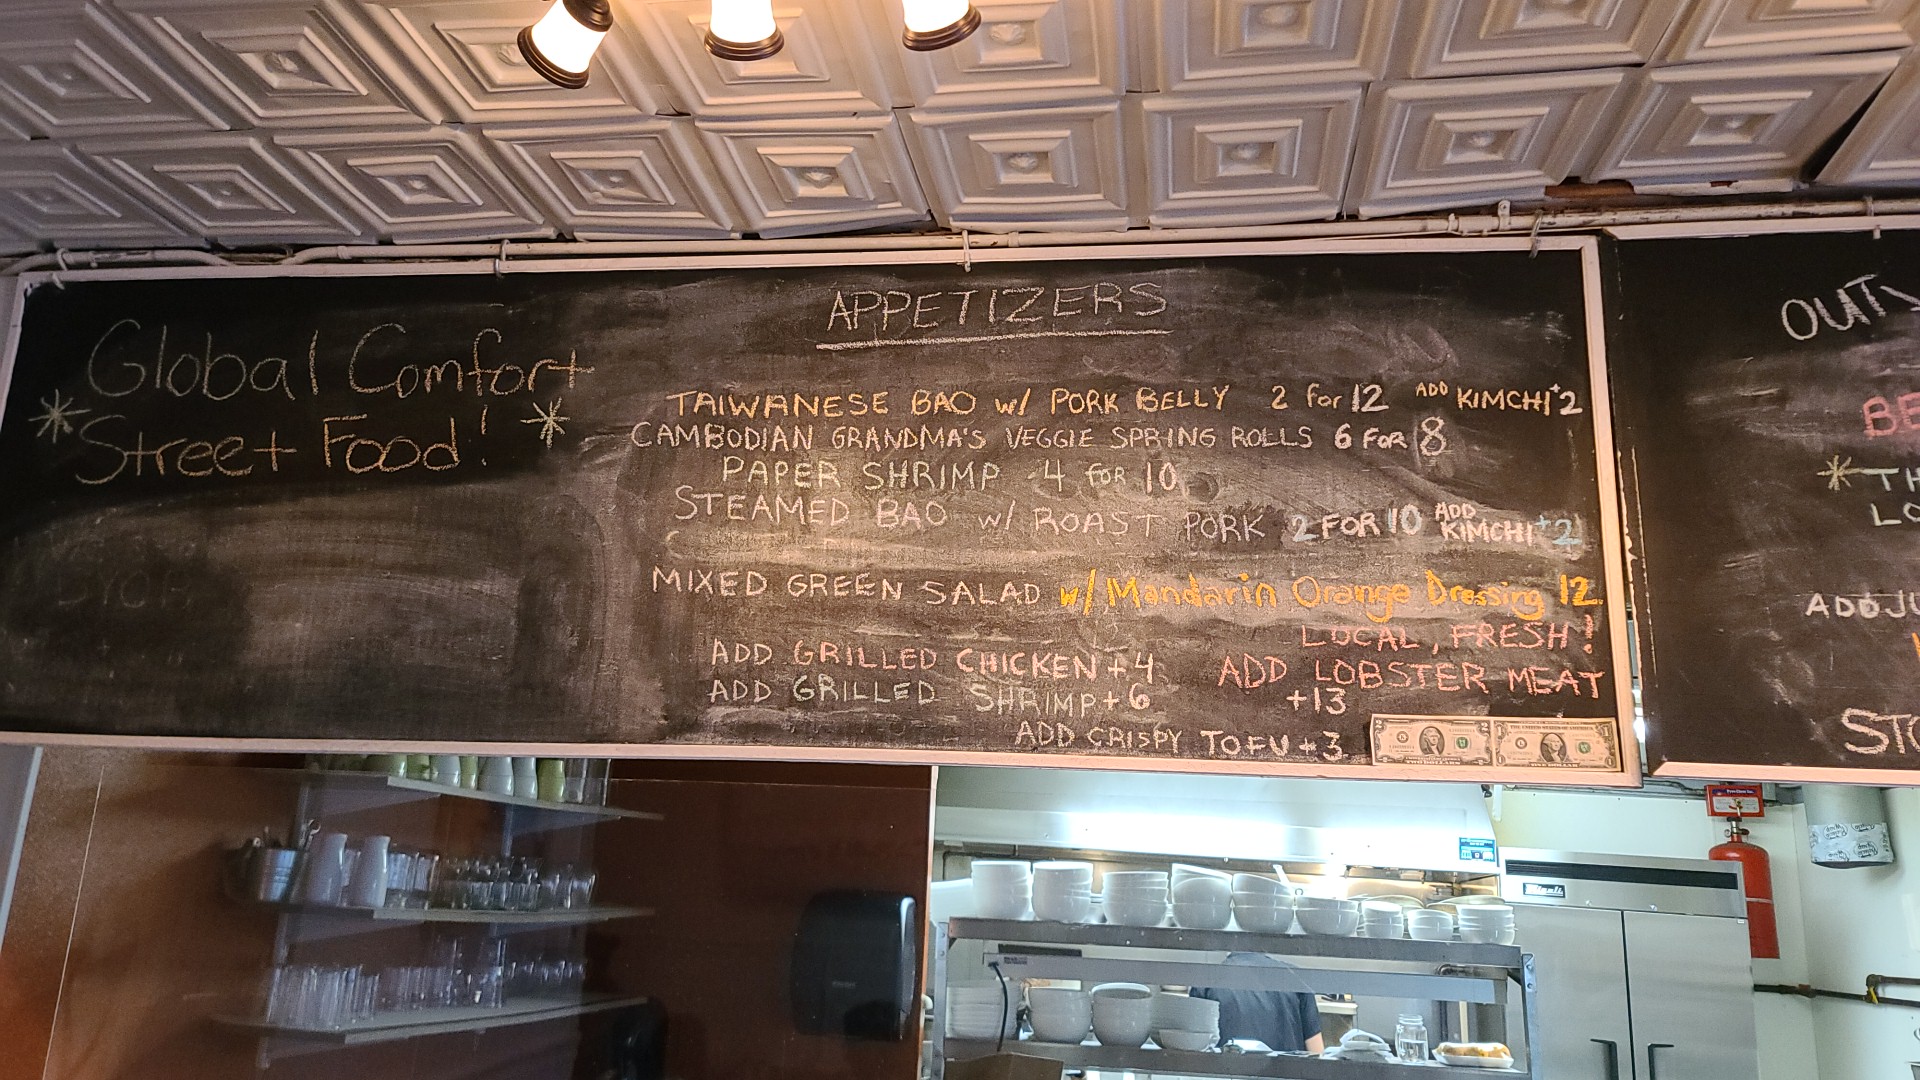 Global Comfort
* Street Food! *
APPETIZERS
TAIWANESE BAO w/ PORK BELLY 2 for 12 ADD KIMCHI +2
CAMBODIAN GRANDMA'S VEGGIE SPRING ROLLS 6 FOR 8
PAPER SHRIMP 4 for 10
STEAMED BAO w/ ROAST PORK 2 FOR 10 ADD KIMCHI +2
MIXED GREEN SALAD w/ Mandarin Orange Dressing 12
LOCAL, FRESH!
ADD GRILLED CHICKEN +4 ADD LOBSTER MEAT
ADD GRILLED SHRIMP +6 +13
ADD CRISPY TOFU +3
OUT
BE
* TH
LO
ADD JU
STO